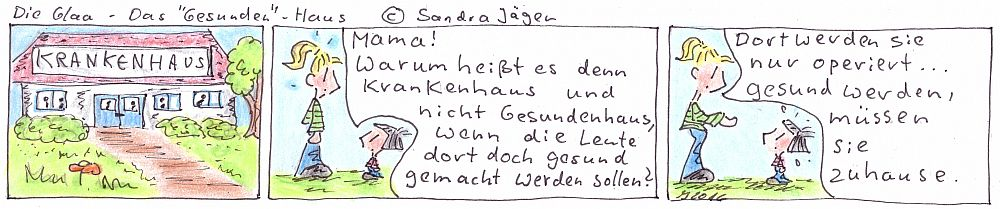 Die Glaa - Das "Gesunden" - Haus © Sandra Jägen
KRANKENHAUS
Mama!
Warum heißt es denn
Krankenhaus und
nicht Gesundenhaus,
wenn die Leute
dort doch gesund
gemacht werden sollen?
Dort werden sie
nur operiert...
gesund werden,
müssen
sie
zuhause.